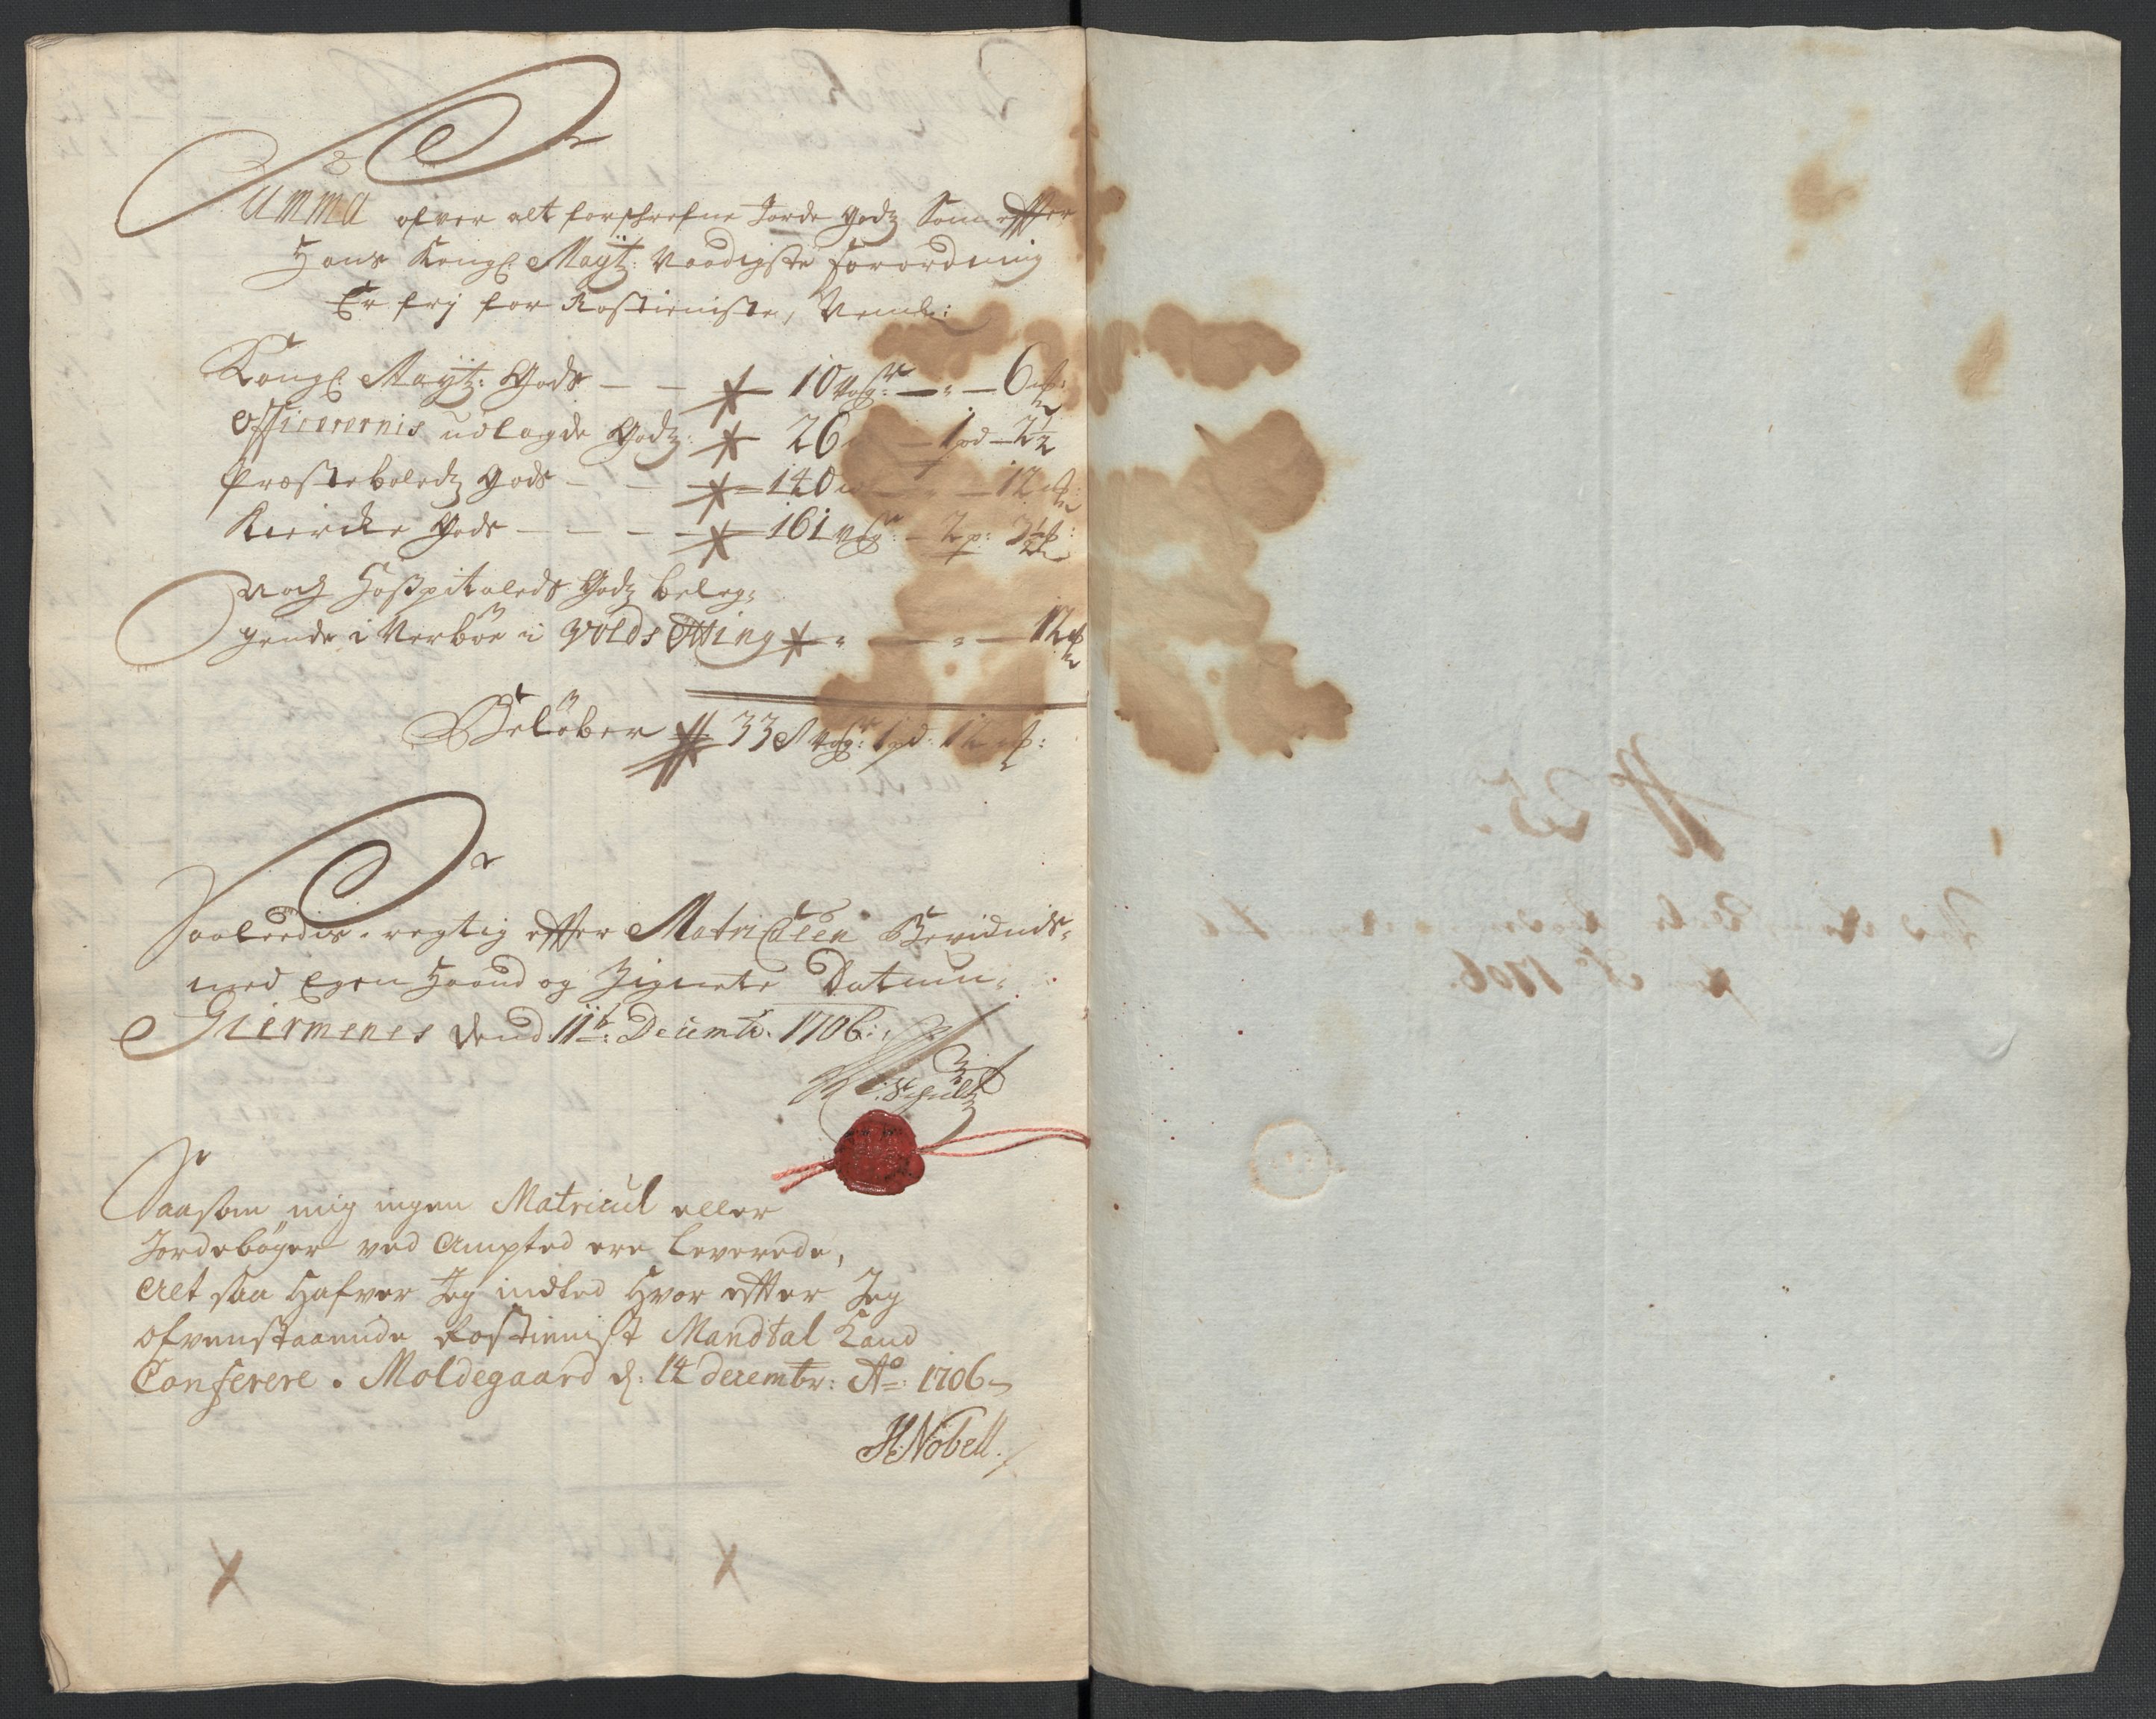 Summa ofver alt forschrefne Jorde Godz Som effter
Hans Kongl: Mayt: Naadigste forordning
Er frj for Rostieniste, Neml:
Kongl: Mayt: Gods - - 10 Vog: - " - 6 
Officerernis udlagde Godz: 26 - 1 pd - 2½
Præsteboledz Gods - - 140 - " - 12
Kiercke Gods - - - - 161 Vog: - 2 p:
Noch Hospitaleds Godz beleg-
gende i Verböe i Volds Otting " - " - 12
Belöber 338 Vog: 1 pd: 12
Saaleedis rigtig effter Matriculen Bevidnis-
med Egen Haand og Zignete Datum
Giermenes dend 11te: Decembr: 1706:
Schultz
Saasom mig ingen Matricul eller
Jordebøger ved Ampted ere leverede,
alt saa Hafver Jeg intted Hvor effter Jeg
ofvenstaaende Rostienist Mandtal Kand
Conferere. Moldegaard d: 14 decembr: Ao: 1706
H: Nobell.
No 25.
Ao 1706.